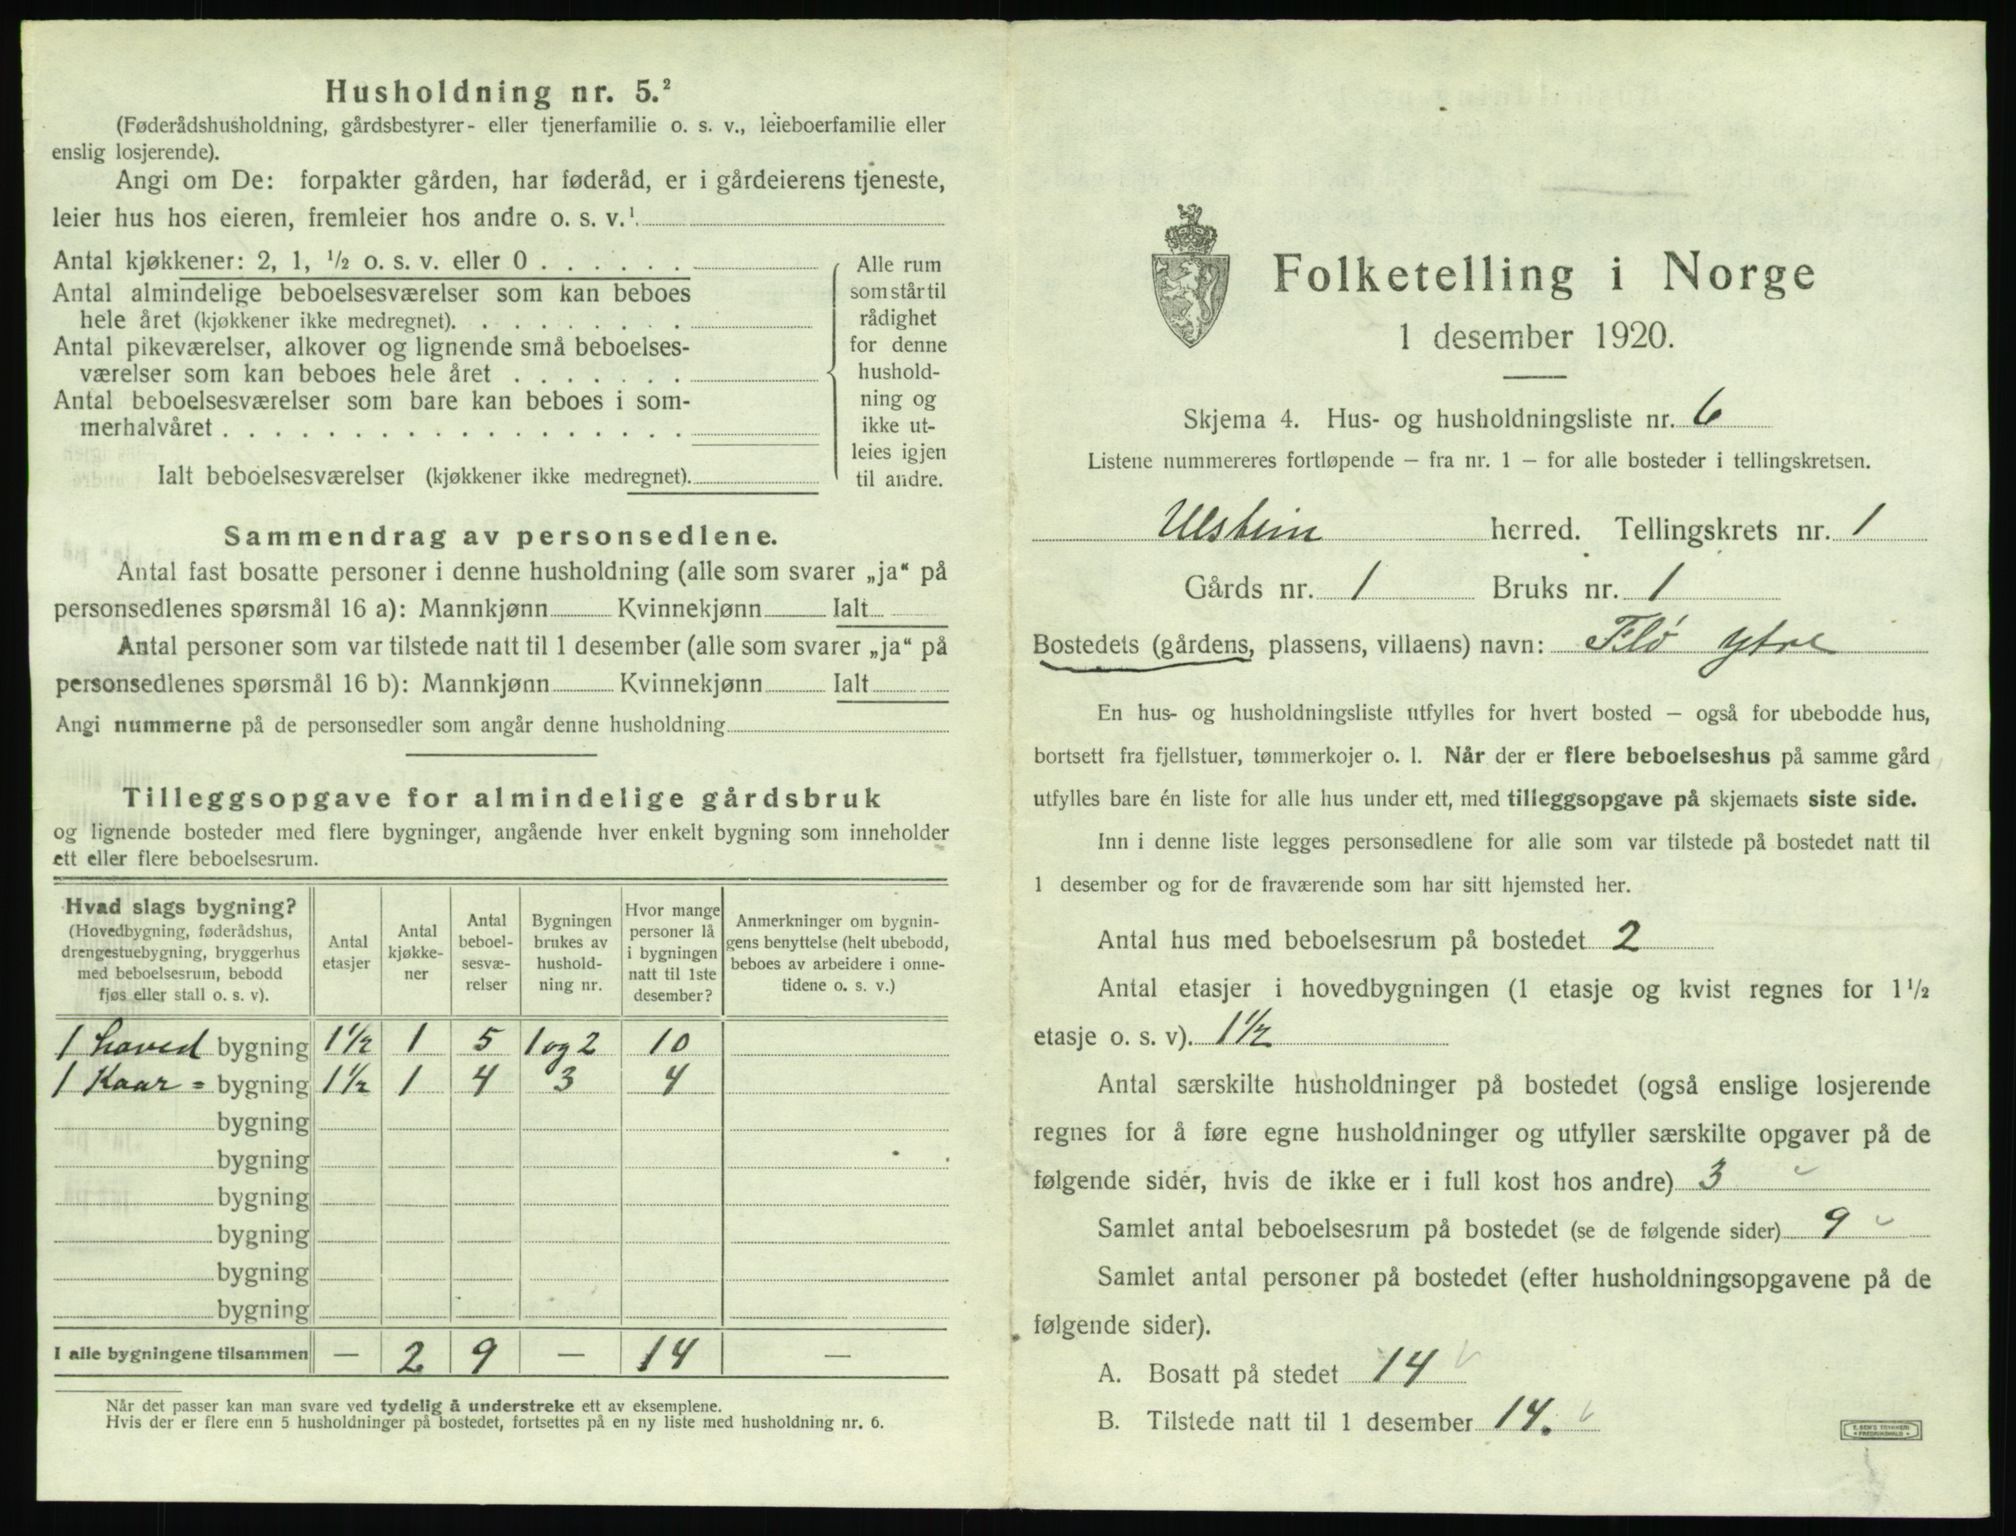 Husholdning nr. 5.²
(Føderådshusholdning, gårdsbestyrer- eller tjenerfamilie o. s. v., leieboerfamilie eller
enslig losjerende).
Angi om De: forpakter gården, har føderåd, er i gårdeierens tjeneste,
leier hus hos eieren, fremleier hos andre o. s. v.¹
Antal kjøkkener: 2, 1, ½ o. s. v. eller 0 . . . . . .
Antal almindelige beboelsesværelser som kan beboes
hele året (kjøkkener ikke medregnet). . . . . . . . .
Antal pikeværelser, alkover og lignende små beboelses-
værelser som kan beboes hele året . . . . . . .
Antal beboelsesværelser som bare kan beboes i som-
merhalvåret . . . . . . . . . . . . . . . . . .
Ialt beboelsesværelser (kjøkkener ikke medregnet).
Alle rum
som står til
rådighet
for denne
hushold-
ning og
ikke ut-
leies igjen
til andre.
Sammendrag av personsedlene.
Antal fast bosatte personer i denne husholdning (alle som svarer „ja“ på
personsedlenes spørsmål 16 a): Mannkjønn Kvinnekjønn Ialt
Antal personer som var tilstede natt til 1 desember (alle som svarer „ja“ på
personsedlenes spørsmål 16 b): Mannkjønn Kvinnekjønn Ialt
Angi nummerne på de personsedler som angår denne husholdning
Tilleggsopgave for almindelige gårdsbruk
og lignende bosteder med flere bygninger, angående hver enkelt bygning som inneholder
ett eller flere beboelsesrum.
Hvad slags bygning?
(Hovedbygning, føderådshus,
drengestuebygning, bryggerhus
med beboelsesrum, bebodd
fjøs eller stall o. s. v).
Antal
etasjer
Antal
kjøkke-
ner
Antal
beboel-
sesvæ-
relser
Bygningen
brukes av
hushold-
ning nr.
Hvor mange
personer lå
i bygningen
natt til 1ste
desember?
Anmerkninger om bygnin-
gens benyttelse (helt ubebodd,
beboes av arbeidere i onne-
tidene o. s. v.)
1 hoved bygning 1½ 1 5 1 og 2 10
1 Kaar = bygning 1½ 1 4 3 4
bygning
bygning
bygning
bygning
bygning
bygning
I alle bygningene tilsammen — 2 9 — 14 —
Når det passer kan man svare ved tydelig å understreke ett av eksemplene.
Hvis der er flere enn 5 husholdninger på bostedet, fortsettes på en ny liste med husholdning nr. 6.
Folketelling i Norge
1 desember 1920.
Skjema 4. Hus- og husholdningsliste nr. 6
Listene nummereres fortløpende — fra nr. 1 — for alle bosteder i tellingskretsen.
Ulstein herred. Tellingskrets nr. 1
Gårds nr. 1 Bruks nr. 1
Bostedets (gårdens, plassens, villaens) navn: Flø ytre
En hus- og husholdningsliste utfylles for hvert bosted — også for ubebodde hus,
bortsett fra fjellstuer, tømmerkojer o. l. Når der er flere beboelseshus på samme gård
utfylles bare én liste for alle hus under ett, med tilleggsopgave på skjemaets siste side.
Inn i denne liste legges personsedlene for alle som var tilstede på bostedet natt til
1 desember og for de fraværende som har sitt hjemsted her.
Antal hus med beboelsesrum på bostedet 2
Antal etasjer i hovedbygningen (1 etasje og kvist regnes for 1½
etasje o. s. v). 1½
Antal særskilte husholdninger på bostedet (også enslige losjerende
regnes for å føre egne husholdninger og utfyller særskilte opgaver på de
følgende sider, hvis de ikke er i full kost hos andre) 3
Samlet antal beboelsesrum på bostedet (se de følgende sider) 9
Samlet antal personer på bostedet (efter husholdningsopgavene på de
følgende sider).
A. Bosatt på stedet 14
B. Tilstede natt til 1 desember 14.